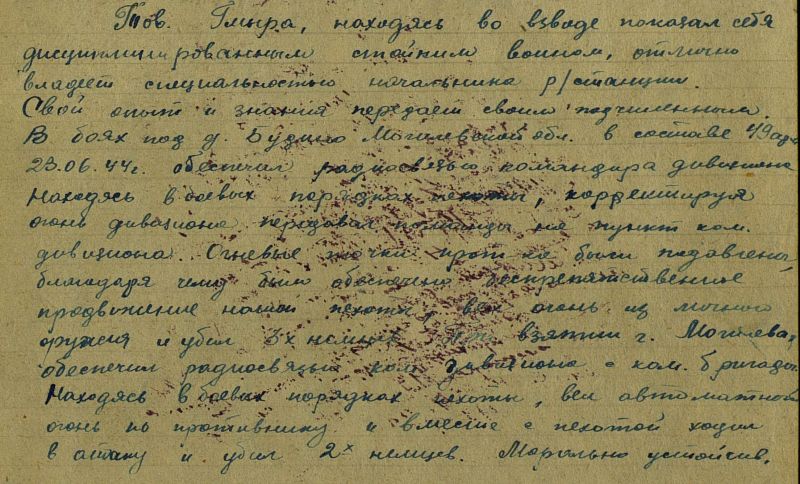 Тов. Гмыра, находясь во взводе показал себя
дисциплинированным стойким воином, отлично
владеет специальностью начальника р/станции.
Свой опыт и знания передает своим подчиненным.
В боях под д. Будино Могилевской обл. в составе 49 арм
23.06.44г. обеспечил радиосвязью командира дивизиона
Находясь в боевых порядках пехоты, корректируя
огонь дивизиона передавал команды на пункт ком.
дивизиона. Огневые точки прот-ка были подавлены,
благодаря чему было обеспечено беспрепятственное
продвижение нашей пехоты, вел огонь из личного
оружия и убил 3х немцев. При взятии г. Могилева,
обеспечил радиосвязью ком. дивизиона с ком. бригады.
Находясь в боевых порядках пехоты, вел автоматной
огонь по противнику и вместе с пехотой ходил
в атаку и убил 2х немцев. Морально устойчив.